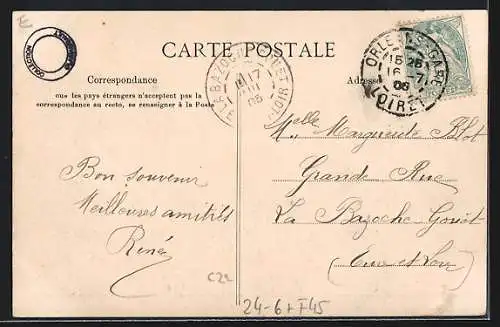 E
CARTE POSTALE
Correspondance
Tous les pays étrangers n'acceptent pas la
correspondance au recto, se renseigner à la Poste
Adresse
LA BAZOCHE-GOUET
17
EURE-ET-LOIR
ORLEANS-GARE
15 25
16 -7
06
LOIRET
Bon souvenir
Meilleures amitiés
René
Melle Marguerite Blot
Grande Rue
La Bazoche Gouët
(Eure et Loir)
C22
24-6+F45